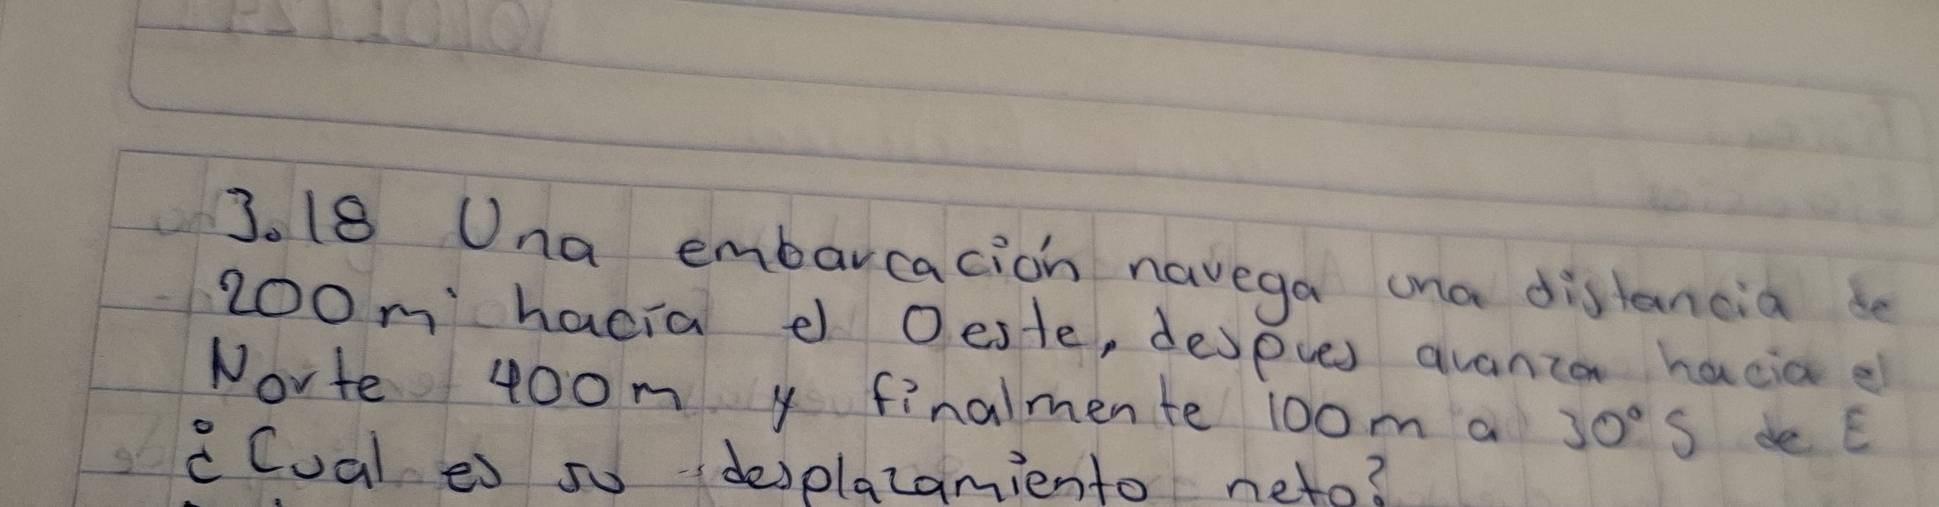 3.18 Una embarcación navega una distancia de
200m hacia el Oeste, despues avanza hacia el
Norte 400m y finalmente 100m a 30° S de E
¿Cual es su desplazamiento neto?